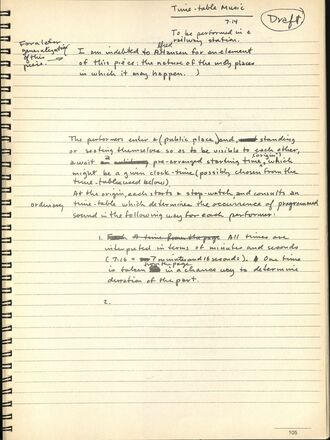 Time-table Music
7.14
Draft
To be performed in a
railway station.
For a later
generalization
of this
piece.
I am indebted to Al Hansen for an element
of this piece: the nature of the only places
in which it may happen. )
The performers enter a (public place) and, standing
or seating themselves so as to be visible to each other,
await a pre-arranged starting time (origin), which
might be a given clock-time (possibly chosen from the
time-table used below)
At the origin, each starts a stop-watch, and consults an
ordinary time-table which determines the occurrence of programmed
sound in the following way for each performer:
1. All times are
interpreted in terms of minutes and seconds
(7:16 = 7 minutes and 16 seconds). One time
is taken from the page in a chance way to determine
duration of the part.
2.
105